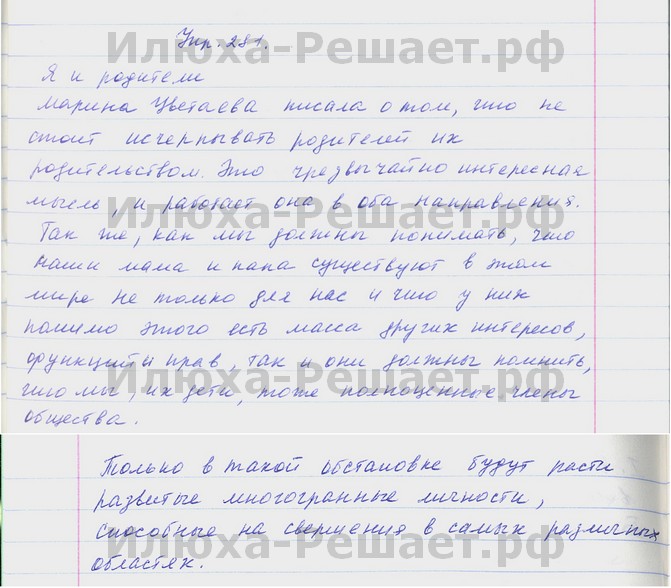 Упр. 281.
Я и родители
Марина Цветаева писала о том, что не
стоит исчерпывать родителей их
родительством. Это чрезвычайно интересная
мысль, и работает она в оба направления.
Так же, как мы должны понимать, что
наши мама и папа существуют в этом
мире не только для нас и что у них
помимо этого есть масса других интересов,
функций и прав, так и они должны помнить,
что мы, их дети, тоже полноценные члены
общества.
Только в такой обстановке будут расти
развитые многогранные личности,
способные на свершения в самых различных
областях.
Илюха-Решает.рф
Илюха-Решает.рф
Илюха-Решает.рф
Илюха-Решает.рф